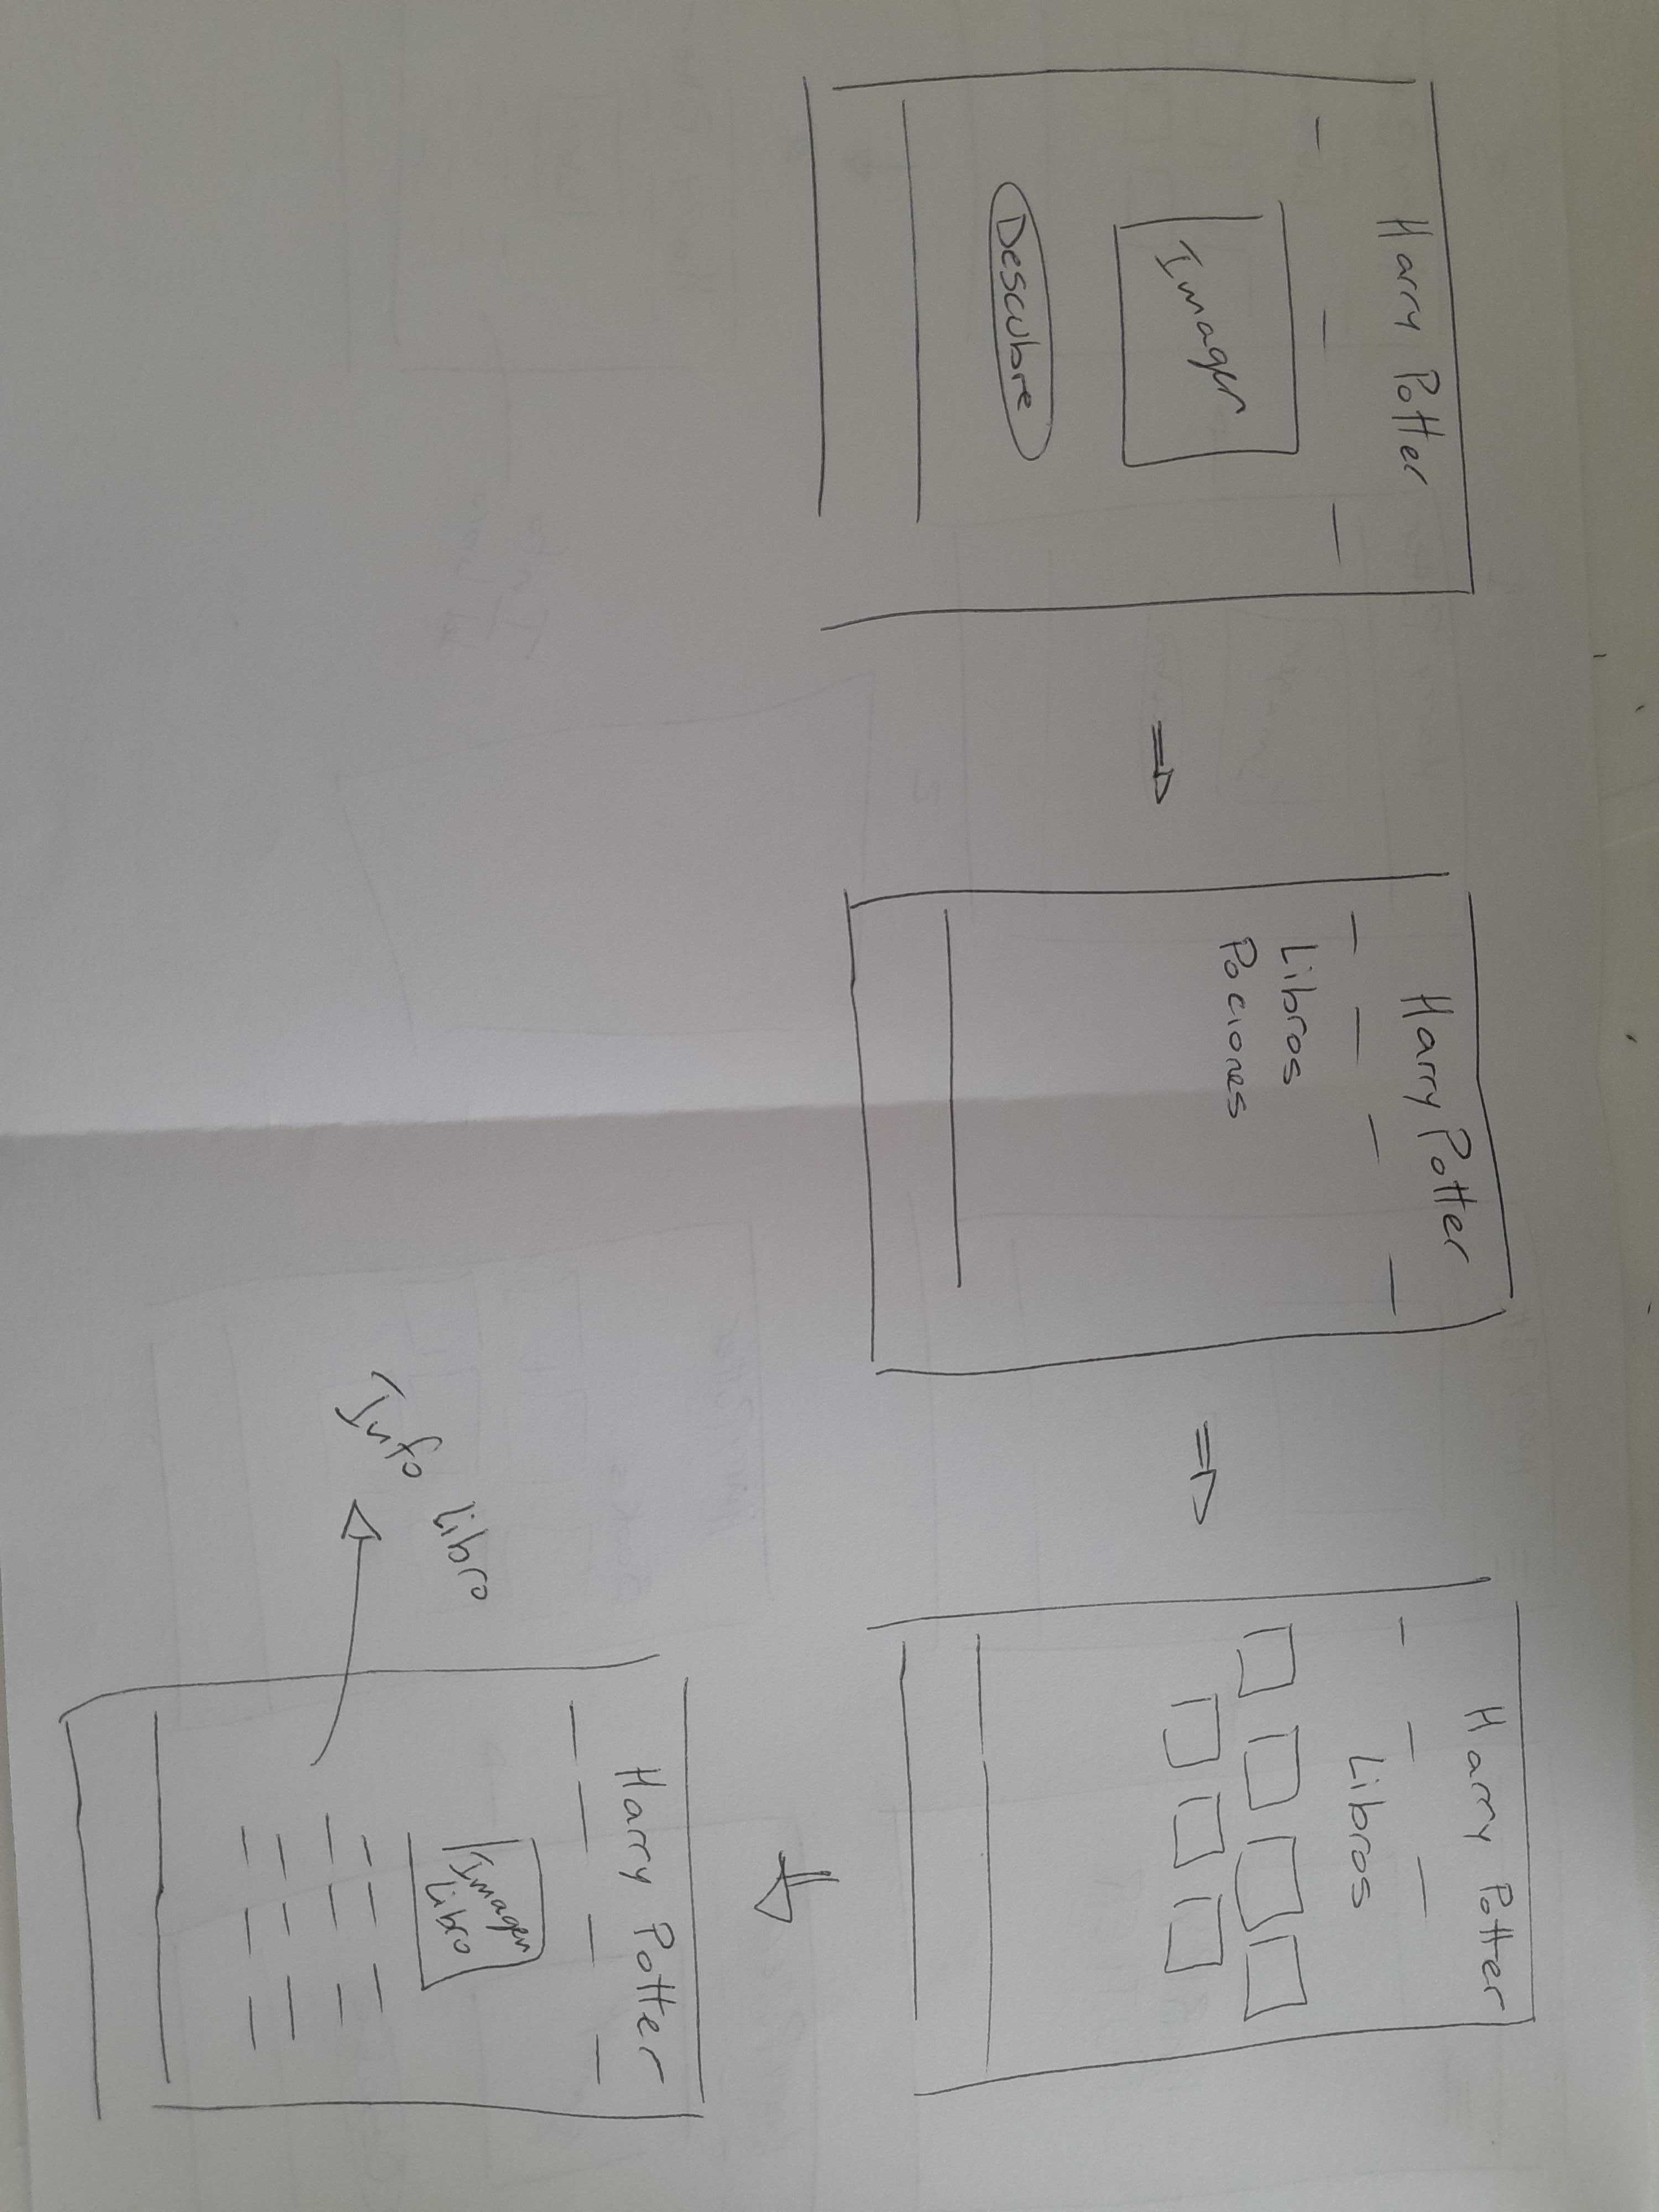 Harry Potter
Imagen
Descubre
Harry Potter
Libros
Pociones
Harry Potter
Libros
Harry Potter
Imagen
Libro
Info Libro